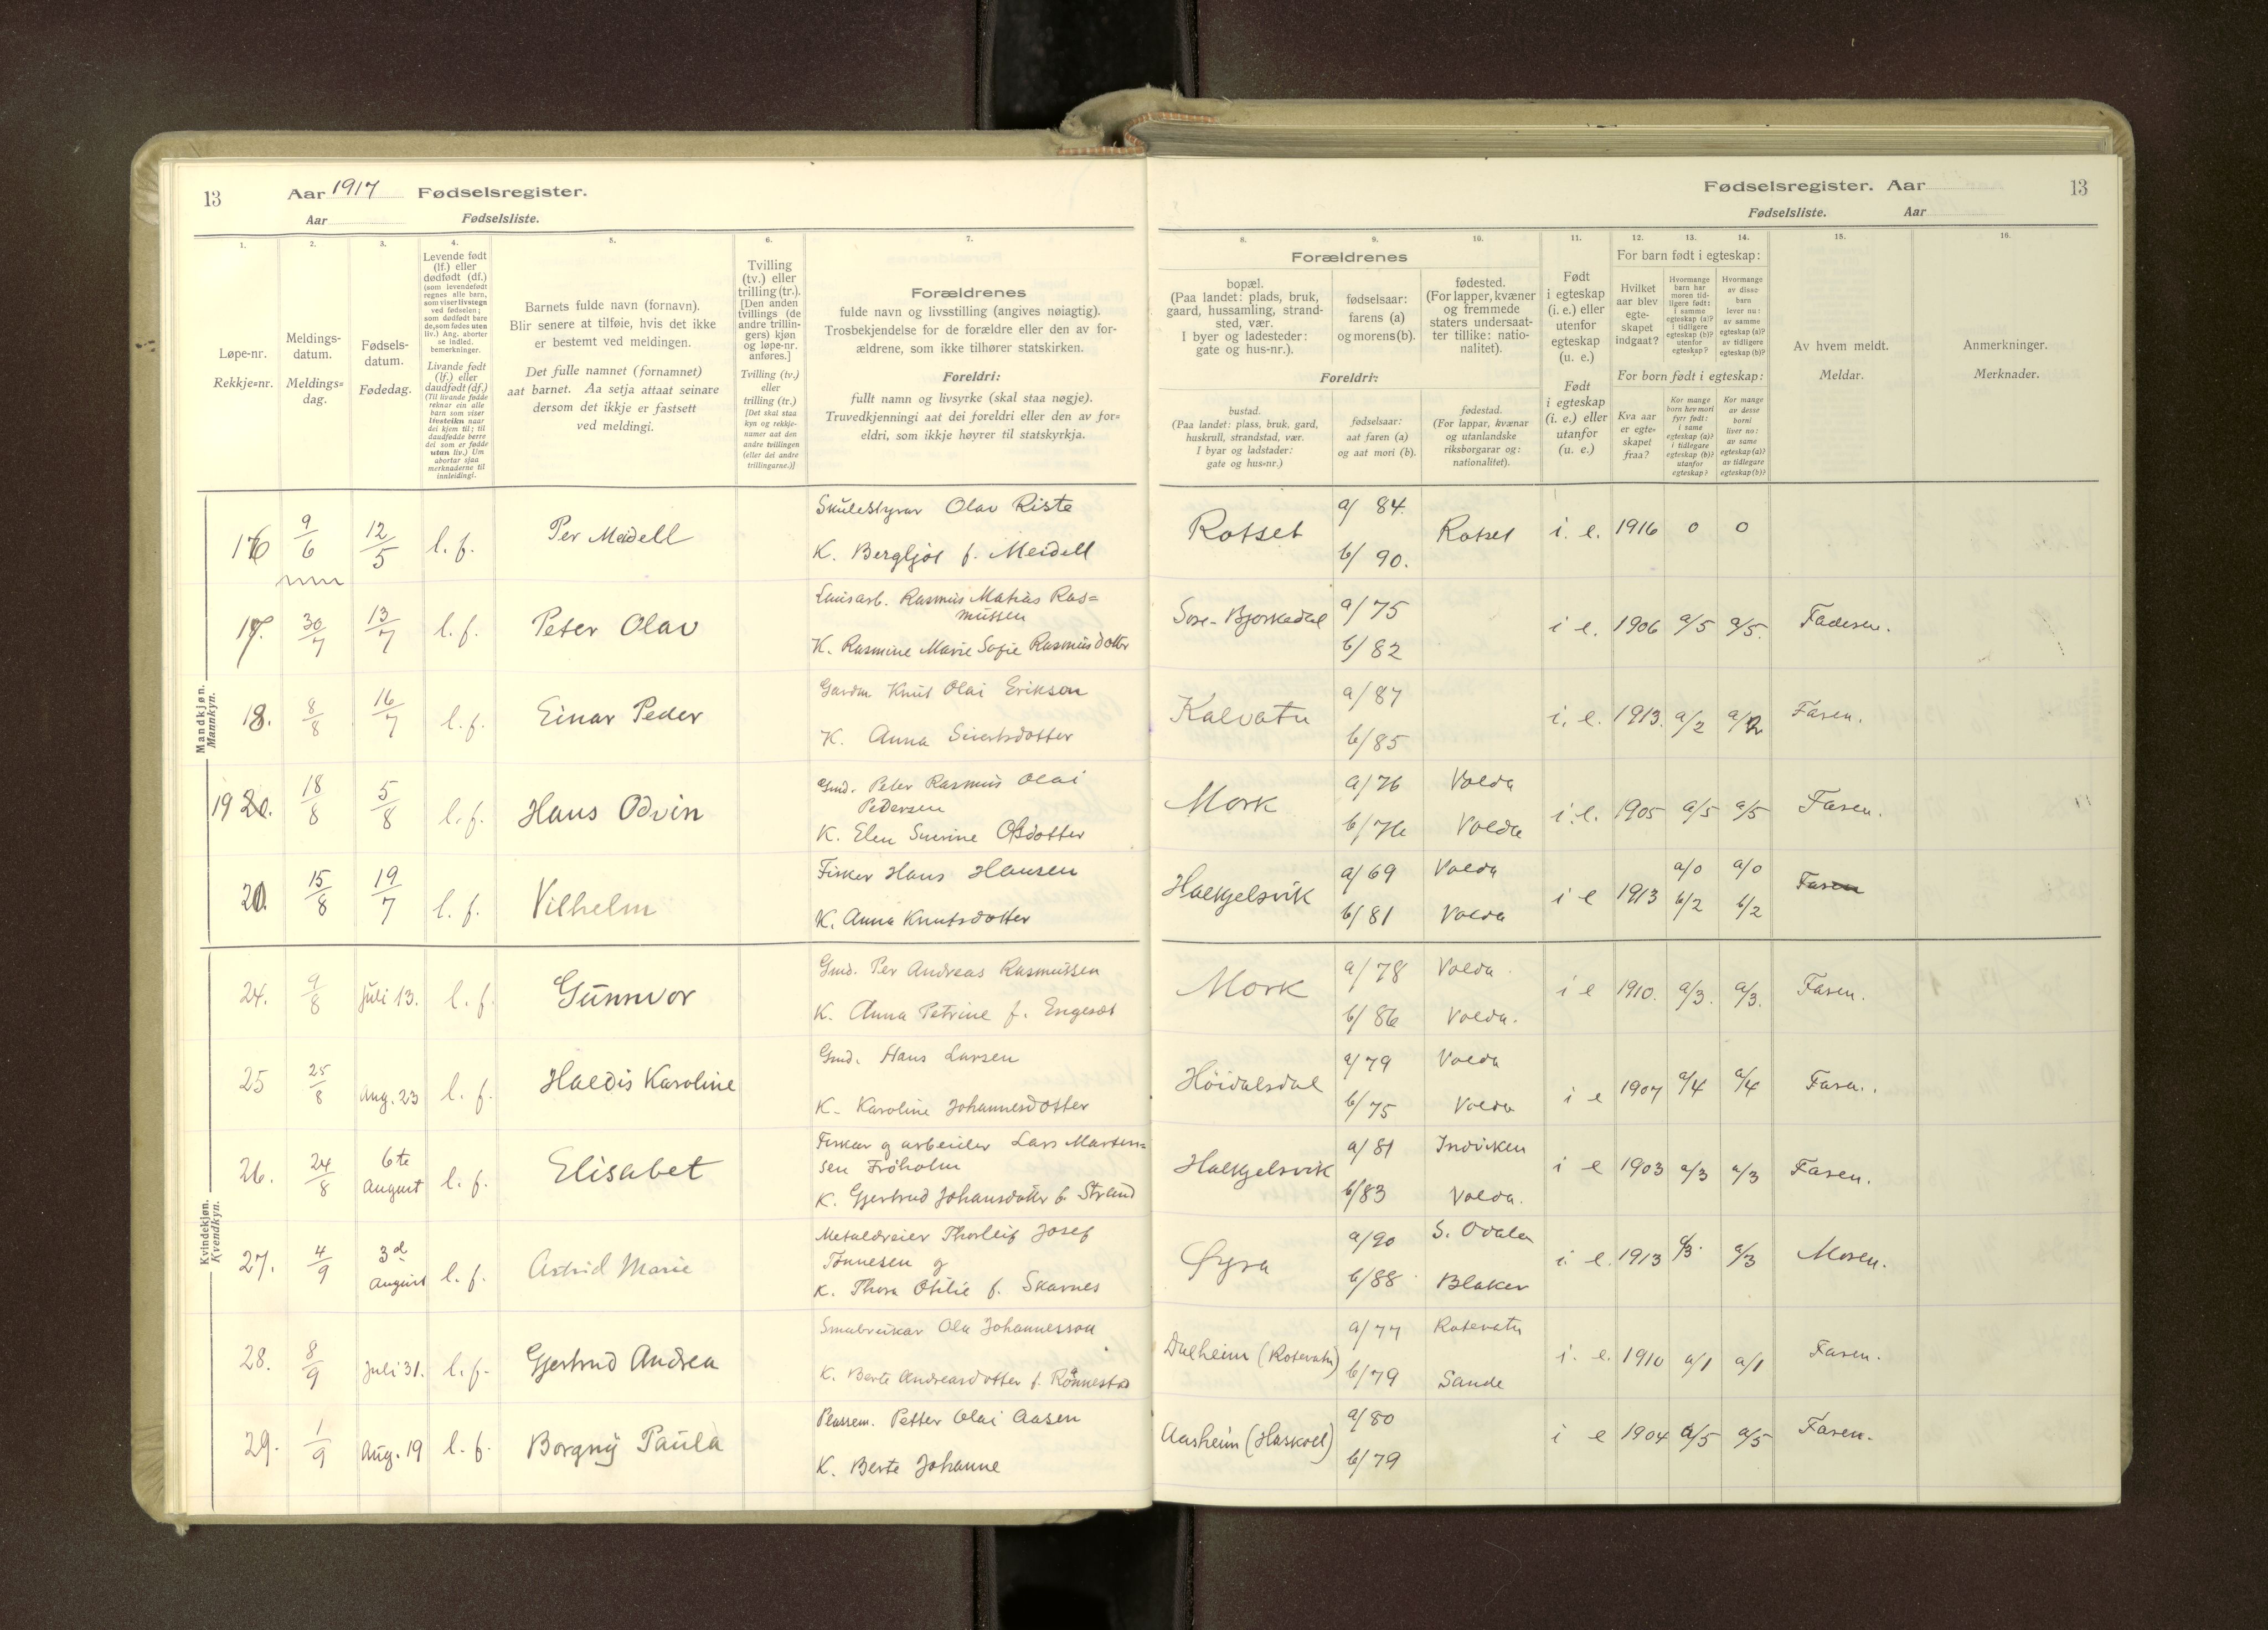 13 Aar 1917 Fødselsregister.
Aar Fødselsliste.
Fødselsregister. Aar 13
Fødselsliste. Aar
1. 2. 3. 4. 5. 6. 7. 8. 9. 10. 11. 12. 13. 14. 15. 16.
Løpe-nr.
Rekkje=nr.
Meldings-
datum.
Meldings=
dag.
Fødsels-
datum.
Fødedag.
Levende født
(lf.) eller
dødfødt (df.)
(som levendefødt
regnes alle barn,
som viser livstegn
ved fødselen;
som dødfødt bare
de, som fødes uten
liv.) Ang. aborter
se indled.
bemerkninger.
Livande født
(lf.) eller
daudfødt (df.)
(Til livande fødde
reknar ein alle
barn som viser
livsteikn naar
dei kjem til; til
daudfødde berre
dei som er fødde
utan liv.) Um
abortar sjaa
merknaderne til
innleidingi.
Barnets fulde navn (fornavn).
Blir senere at tilføie, hvis det ikke
er bestemt ved meldingen.
Det fulle namnet (fornamnet)
aat barnet. Aa setja attaat seinare
dersom det ikkje er fastsett
ved meldingi.
Tvilling
(tv.) eller
trilling (tr.).
[Den anden
tvillings (de
andre trillin-
gers) kjøn
og løpe-nr.
anføres.]
Tvilling (tv.)
eller
trilling (tr.)
[Det skal staa
kyn og rekkje-
numer aat den
andre tvillingen
(eller dei andre
trillingarne.)]
Forældrenes
fulde navn og livsstilling (angives nøiagtig).
Trosbekjendelse for de forældre eller den av for-
ældrene, som ikke tilhører statskirken.
Foreldri:
fullt namn og livsyrke (skal staa nøgje).
Truvedkjenningi aat dei foreldri eller den av for=
eldri, som ikkje høyrer til statskyrkja.
Forældrenes
bopæl.
(Paa landet: plads, bruk,
gaard, hussamling, strand-
sted, vær.
I byer og ladesteder:
gate og hus-nr.).
fødselsaar:
farens (a)
og morens (b).
fødested.
(For lapper, kvæner
og fremmede
staters undersaat-
ter tillike: natio-
nalitet).
Foreldri:
bustad.
(Paa landet: plass, bruk, gard,
huskrull, strandstad, vær.
I byar og ladstader:
gate og hus=nr.)
fødselsaar:
aat faren (a)
og aat mori (b).
fødestad.
(For lappar, kvænar
og utanlandske
riksborgarar og:
nationalitet).
Født
i egteskap
(i. e.) eller
utenfor
egteskap
(u. e.)
Født
i egteskap
(i. e.) eller
utanfor
(u. e.)
For barn født i egteskap:
Hvilket
aar blev
egte-
skapet
indgaat?
Hvormange
barn har
moren tid-
ligere født:
i samme
egteskap (a)?
i tidligere
egteskap (b)?
utenfor
egteskap?
Hvormange
av disse
barn
lever nu:
av samme
egteskap (a)?
av tidligere
egteskap (b)?
For born født i egteskap:
Kva aar
er egte=
skapet
fraa?
Kor mange
born hev mori
fyrr født:
i same
egteskap (a)?
i tidlegare
egteskap (b)?
utanfor
egteskap?
Kor mange
av desse
borni
liver no:
av same
egteskap (a)?
av tidlegare
egteskap (b)?
Av hvem meldt.
Meldar.
Anmerkninger.
Merknader.
Mandkjøn.
Mannkyn.
16 9/6 12/5 l. f. Per Meidell
Skulestyrar Olav Riste
K. Bergljot f. Meidell
Rotset a/ 84. b/ 90. Rotset i. e. 1916 0 0
17. 30/7 13/7 l. f. Peter Olav
Lausarb. Rasmus Matias Ras=
mussen
K. Rasmine Marie Sofie Rasmusdotter
Søre-Bjørkedal a/75 b/82 i e. 1906 a/5 a/5. Faderen.
18. 8/8 16/7 l. f. Einar Peder
Gardm. Knut Olai Eriksen
K. Anna Sivertsdotter
Kalvatn a/87 b/85 i. e. 1913. a/2 a/2 Faren.
19 18/8 5/8 l. f. Hans Odvin
Gmd. Peter Rasmus Olai
Pedersen
K. Elen Severine
Mork a/76 Volda b/76 Volda i. e. 1905 a/5 a/5 Faren.
20. 15/8 19/7 l. f. Vilhelm
Fisker Hans Hansen
K. Anna Knutsdotter
Halkjelsvik a/69 Volda b/81 Volda i e 1913 a/0 b/2 a/0 b/2 Faren
Kvindekjøn.
Kvendkyn.
24. 9/8 Juli 13. l. f. Gunnvor
Gmd. Per Andreas Rasmussen
K. Anna Petrine f. Engeset
Mork a/78 Volda b/86 Volda. i e 1910. a/3. a/3. Faren.
25 25/8 Aug. 23 l. f. Haldis Karoline
Gmd. Hans Larsen
K. Karoline Johannesdotter
Høidalsdal a/79 Volda b/75 Volda i e 1907 a/4 a/4 Faren.
26. 24/8 6te August l. f. Elisabet
Fiskar og arbeider Lars Martin=
sen Frøholm
K. Gjertrud Johansdotter f. Strand
Halkjelsvik a/81 Indviken b/83 Volda. i e 1903 a/3 a/3 Faren.
27. 4/9 3d August l. f. Astrid Marie
Metaldreier Thorleif Josef
Tønnesen og
K. Thora Otilie f. Skarnes
Øyra a/90 S. Odalen b/88 Blaker i. e. 1913 a/3. a/3 Moren.
28. 8/9 Juli 31. l. f. Gjertrud Andrea
Smabrukar Ola Johannesson
K. Berte Andreasdotter f. Rønnestad
Dalheim (Rotevatn) a/77 Rotevatn b/79 Sande i. e. 1910 a/1 a/1 Faren.
29. 1/9 Aug. 19 l. f. Borgny Paula
Plassem. Petter Olai Aasen
K. Berte Johanne
Aasheim (Haskoll) a/80 b/79 i e 1904 a/5 a/5 Faren.